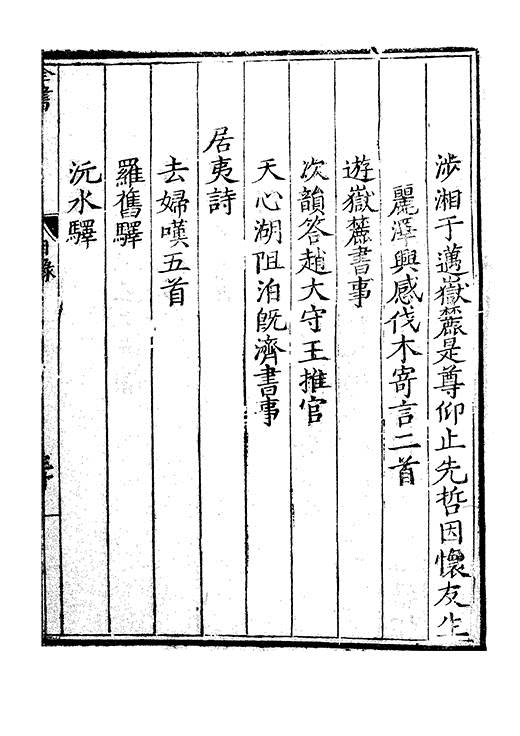 涉湘于邁嶽麓是尊仰止先哲因懷友生
麗澤興感伐木寄言二首
遊嶽麓書事
次韻答趙大守王推官
天心湖阻泊既濟書事
居夷詩
去婦嘆五首
羅舊驛
沅水驛
全書
目錄